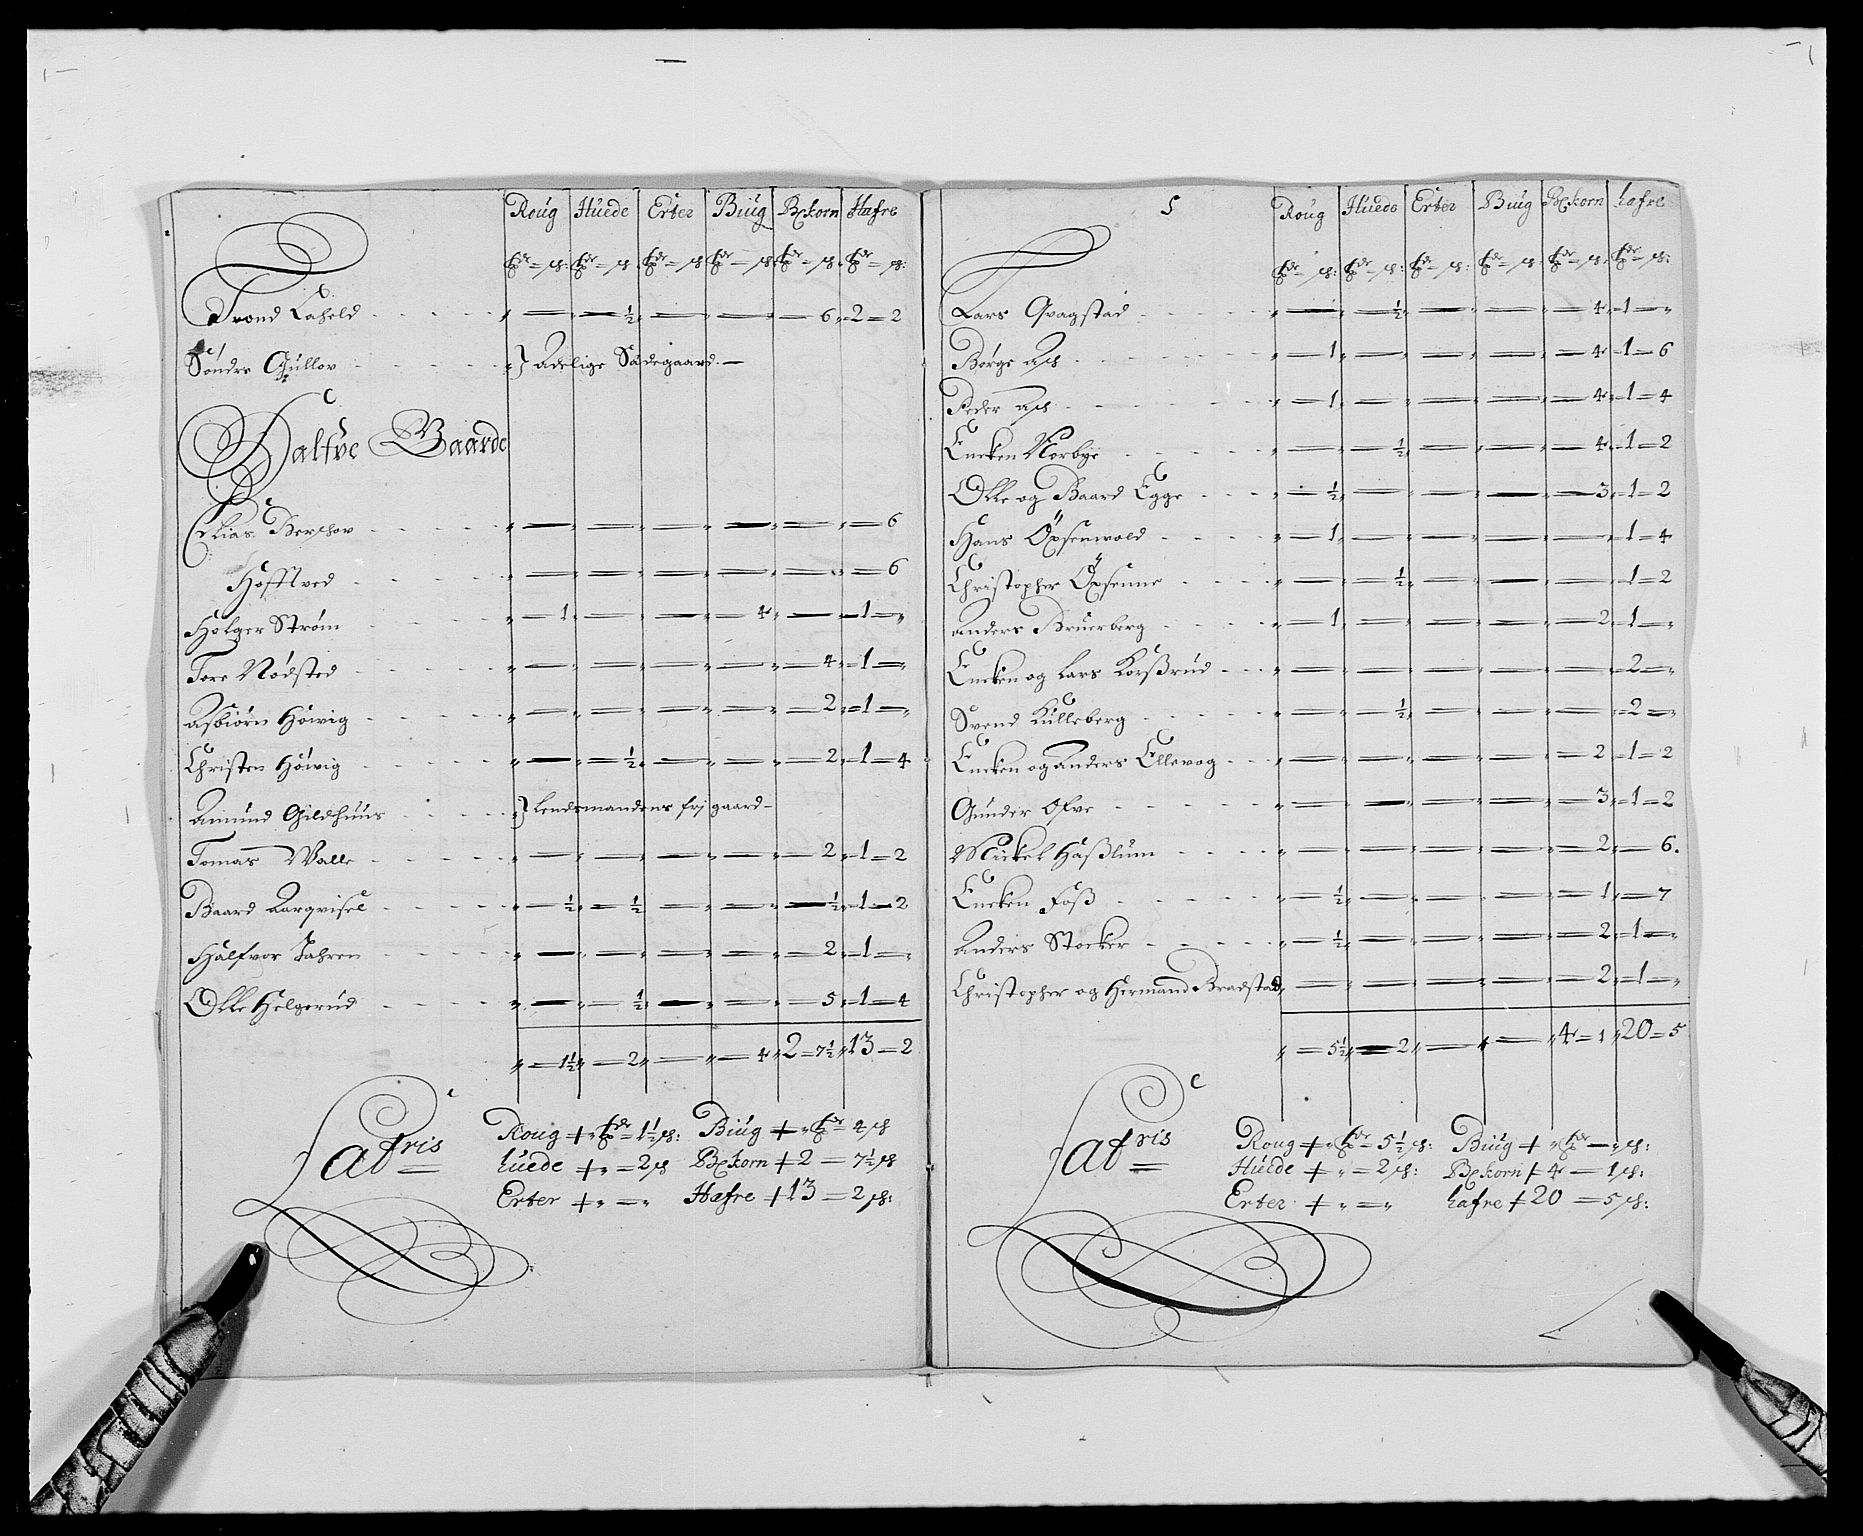 Roug Huede Erter Biug Bl:korn Hafre
Trond Laheld — — ½ — — — 6 2 = 2
Søndre Gullov } Adelige Sædegaard.
Halfve Gaarde
Elias — — — — — 6
Hofftved — — — — — 6
Holger Strøm 1 — — 4 — 1 =
Tore Nødsted — — — — 4 1 =
Asbiørn Høivig — — — — 2 1 =
Christen Høivig — ½ — — 2 1 = 4
Amund Gildhuus } Lendsmandens frj gaard
Tomas Walle — — — — 2 1 = 2
Baard Aarqvisel ½ ½ — — ½ 1 = 2
Halfvor Jahren — — — — 2 1 =
Olle Helgerud — ½ — — 5 1 = 4
1½ 2 — 4 2 = 7½ 13 = 2
Latris
Roug + = 1½ Biug + = 4
huede + = 2 Bl:korn + 2 = 7½
Erter + = Hafre + 13 = 2
5
Roug Huede Erter Biug Bl:korn hafre
Lars Qvagstad — ½ — — 4 1 =
Børge 1 — — — 4 1 = 6
Peder 1 — — — 4 1 = 4
Encken Norbye — ½ — — 4 1 = 2
Olle og Baard Egge ½ — — — 3 1 = 2
Hans Öxsenvold 1 — — — — 1 = 4
Christopher Öxsenne — ½ — — — 1 = 2
Anders Bruerberg 1 — — — 2 1 =
Encken og Lars Korßrud — — — — — 2 =
Svend Kulleberg — ½ — — — 2 =
Encken og Anders Ellevog — — — — 2 1 = 2
Gunder Ofve — — — — 3 1 = 2
Mickel Haßlum — — — — 2 — 6.
Encken Foß ½ — — — 1 — 7
Anders Stocker ½ — — — 2 1 =
Christopher og Hermand Bradstad — — — — 2 1 =
5½ 2 — — 4 = 1 20 = 5
Latris
Roug + = 5½ Biug + =
Huede + = 2 Bl:korn + 4 = 1
Erter + = hafre + 20 = 5